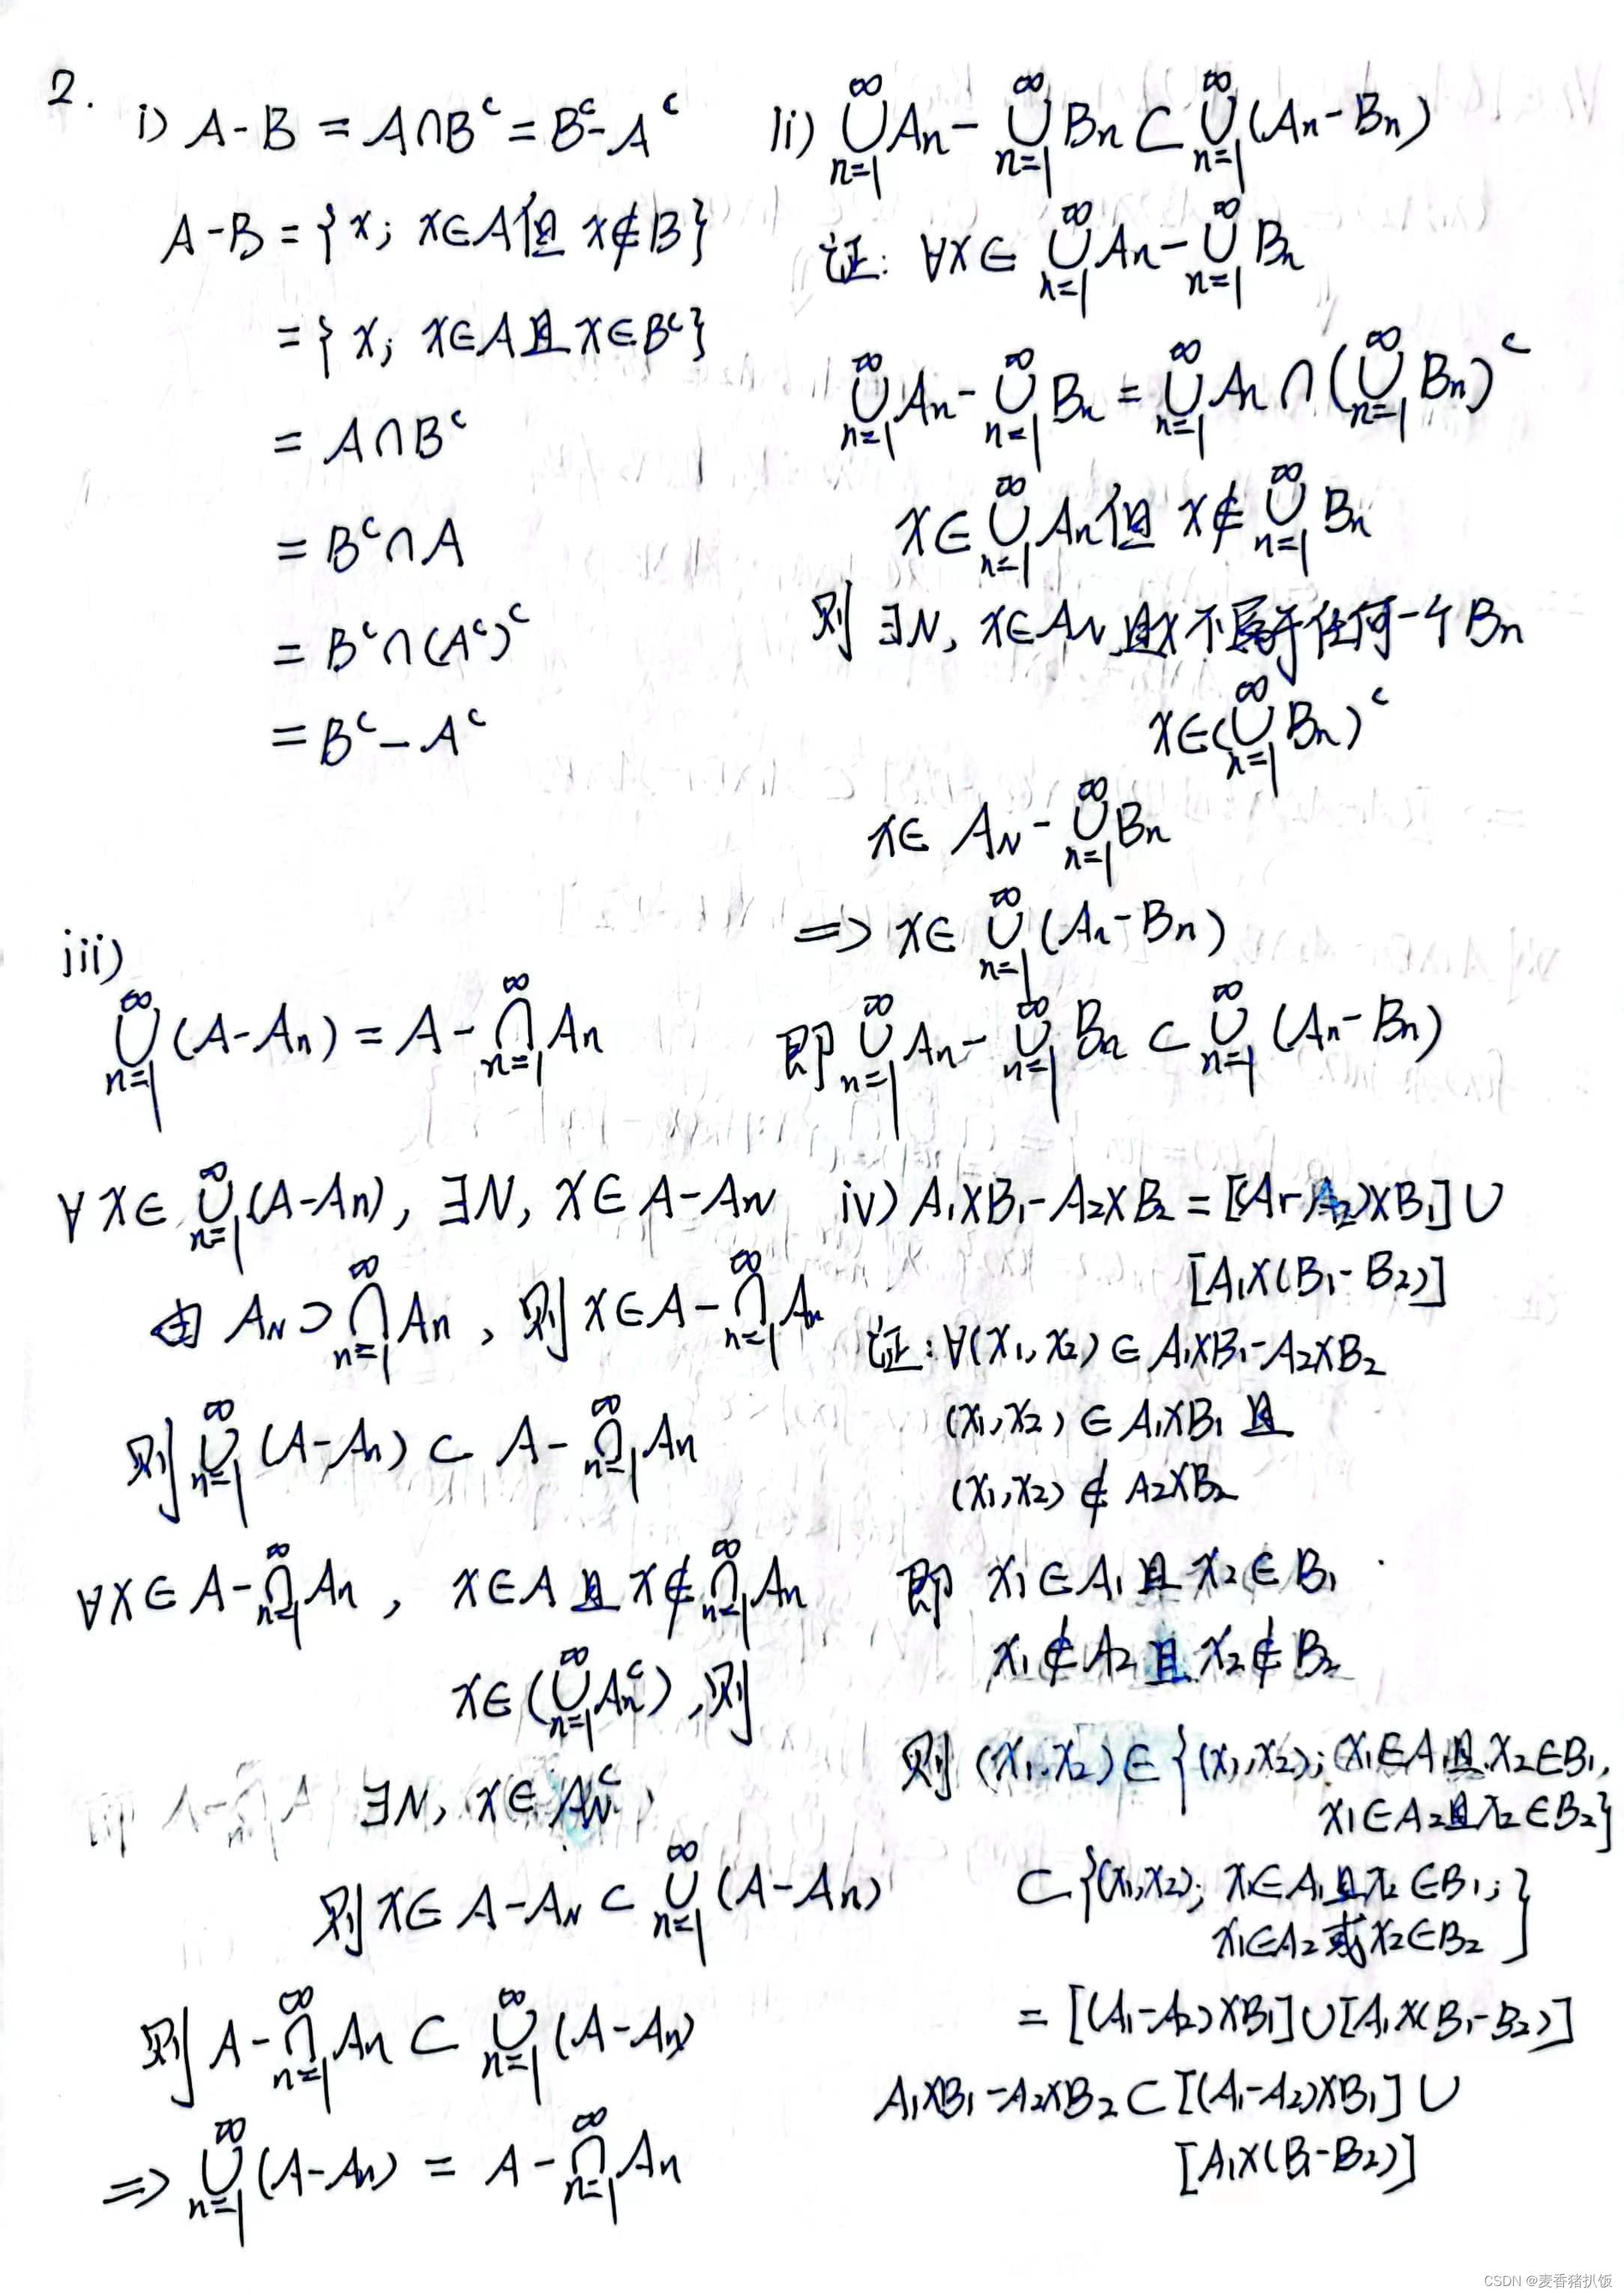 2.
i) A-B = A∩B^c = B^c-A^c
A-B = {x; x∈A但 x∉B}
= {x; x∈A且x∈B^c}
= A∩B^c
= B^c∩A
= B^c∩(A^c)^c
= B^c-A^c
ii) ⋃_{n=1}^∞ An - ⋃_{n=1}^∞ Bn ⊂ ⋃_{n=1}^∞ (An-Bn)
证: ∀x∈ ⋃_{n=1}^∞ An - ⋃_{n=1}^∞ Bn
⋃_{n=1}^∞ An - ⋃_{n=1}^∞ Bn = ⋃_{n=1}^∞ An ∩ (⋃_{n=1}^∞ Bn)^c
x∈ ⋃_{n=1}^∞ An 但 x∉ ⋃_{n=1}^∞ Bn
则 ∃N, x∈A_N 且x不属于任何一个Bn
x∈(⋃_{n=1}^∞ Bn)^c
x∈ A_N - ⋃_{n=1}^∞ Bn
=> x∈ ⋃_{n=1}^∞ (An-Bn)
即 ⋃_{n=1}^∞ An - ⋃_{n=1}^∞ Bn ⊂ ⋃_{n=1}^∞ (An-Bn)
iii)
⋃_{n=1}^∞ (A-An) = A - ⋂_{n=1}^∞ An
∀x∈ ⋃_{n=1}^∞ (A-An), ∃N, x∈A-A_N
由 A_N ⊃ ⋂_{n=1}^∞ An, 则 x∈A - ⋂_{n=1}^∞ An
则 ⋃_{n=1}^∞ (A-An) ⊂ A - ⋂_{n=1}^∞ An
∀x∈A - ⋂_{n=1}^∞ An, x∈A 且 x∉ ⋂_{n=1}^∞ An
x∈(⋃_{n=1}^∞ An^c), 则
∃N, x∈A_N^c,
则 x∈A-A_N ⊂ ⋃_{n=1}^∞ (A-An)
则 A - ⋂_{n=1}^∞ An ⊂ ⋃_{n=1}^∞ (A-An)
=> ⋃_{n=1}^∞ (A-An) = A - ⋂_{n=1}^∞ An
iv) A1×B1-A2×B2 = [(A1-A2)×B1]∪
[A1×(B1-B2)]
证: ∀(x1,x2) ∈ A1×B1-A2×B2
(x1,x2) ∈ A1×B1 且
(x1,x2) ∉ A2×B2
即 x1∈A1 且 x2∈B1
x1∉A2 且 x2∉B2
则 (x1,x2)∈{(x1,x2); x1∈A1且x2∈B1,
x1∈A2且x2∈B2}
⊂{(x1,x2); x1∈A1且x2∈B1;
x1∈A2或x2∈B2}
= [(A1-A2)×B1]∪[A1×(B1-B2)]
A1×B1-A2×B2⊂[(A1-A2)×B1]∪
[A1×(B1-B2)]
CSDN @麦香猪扒饭